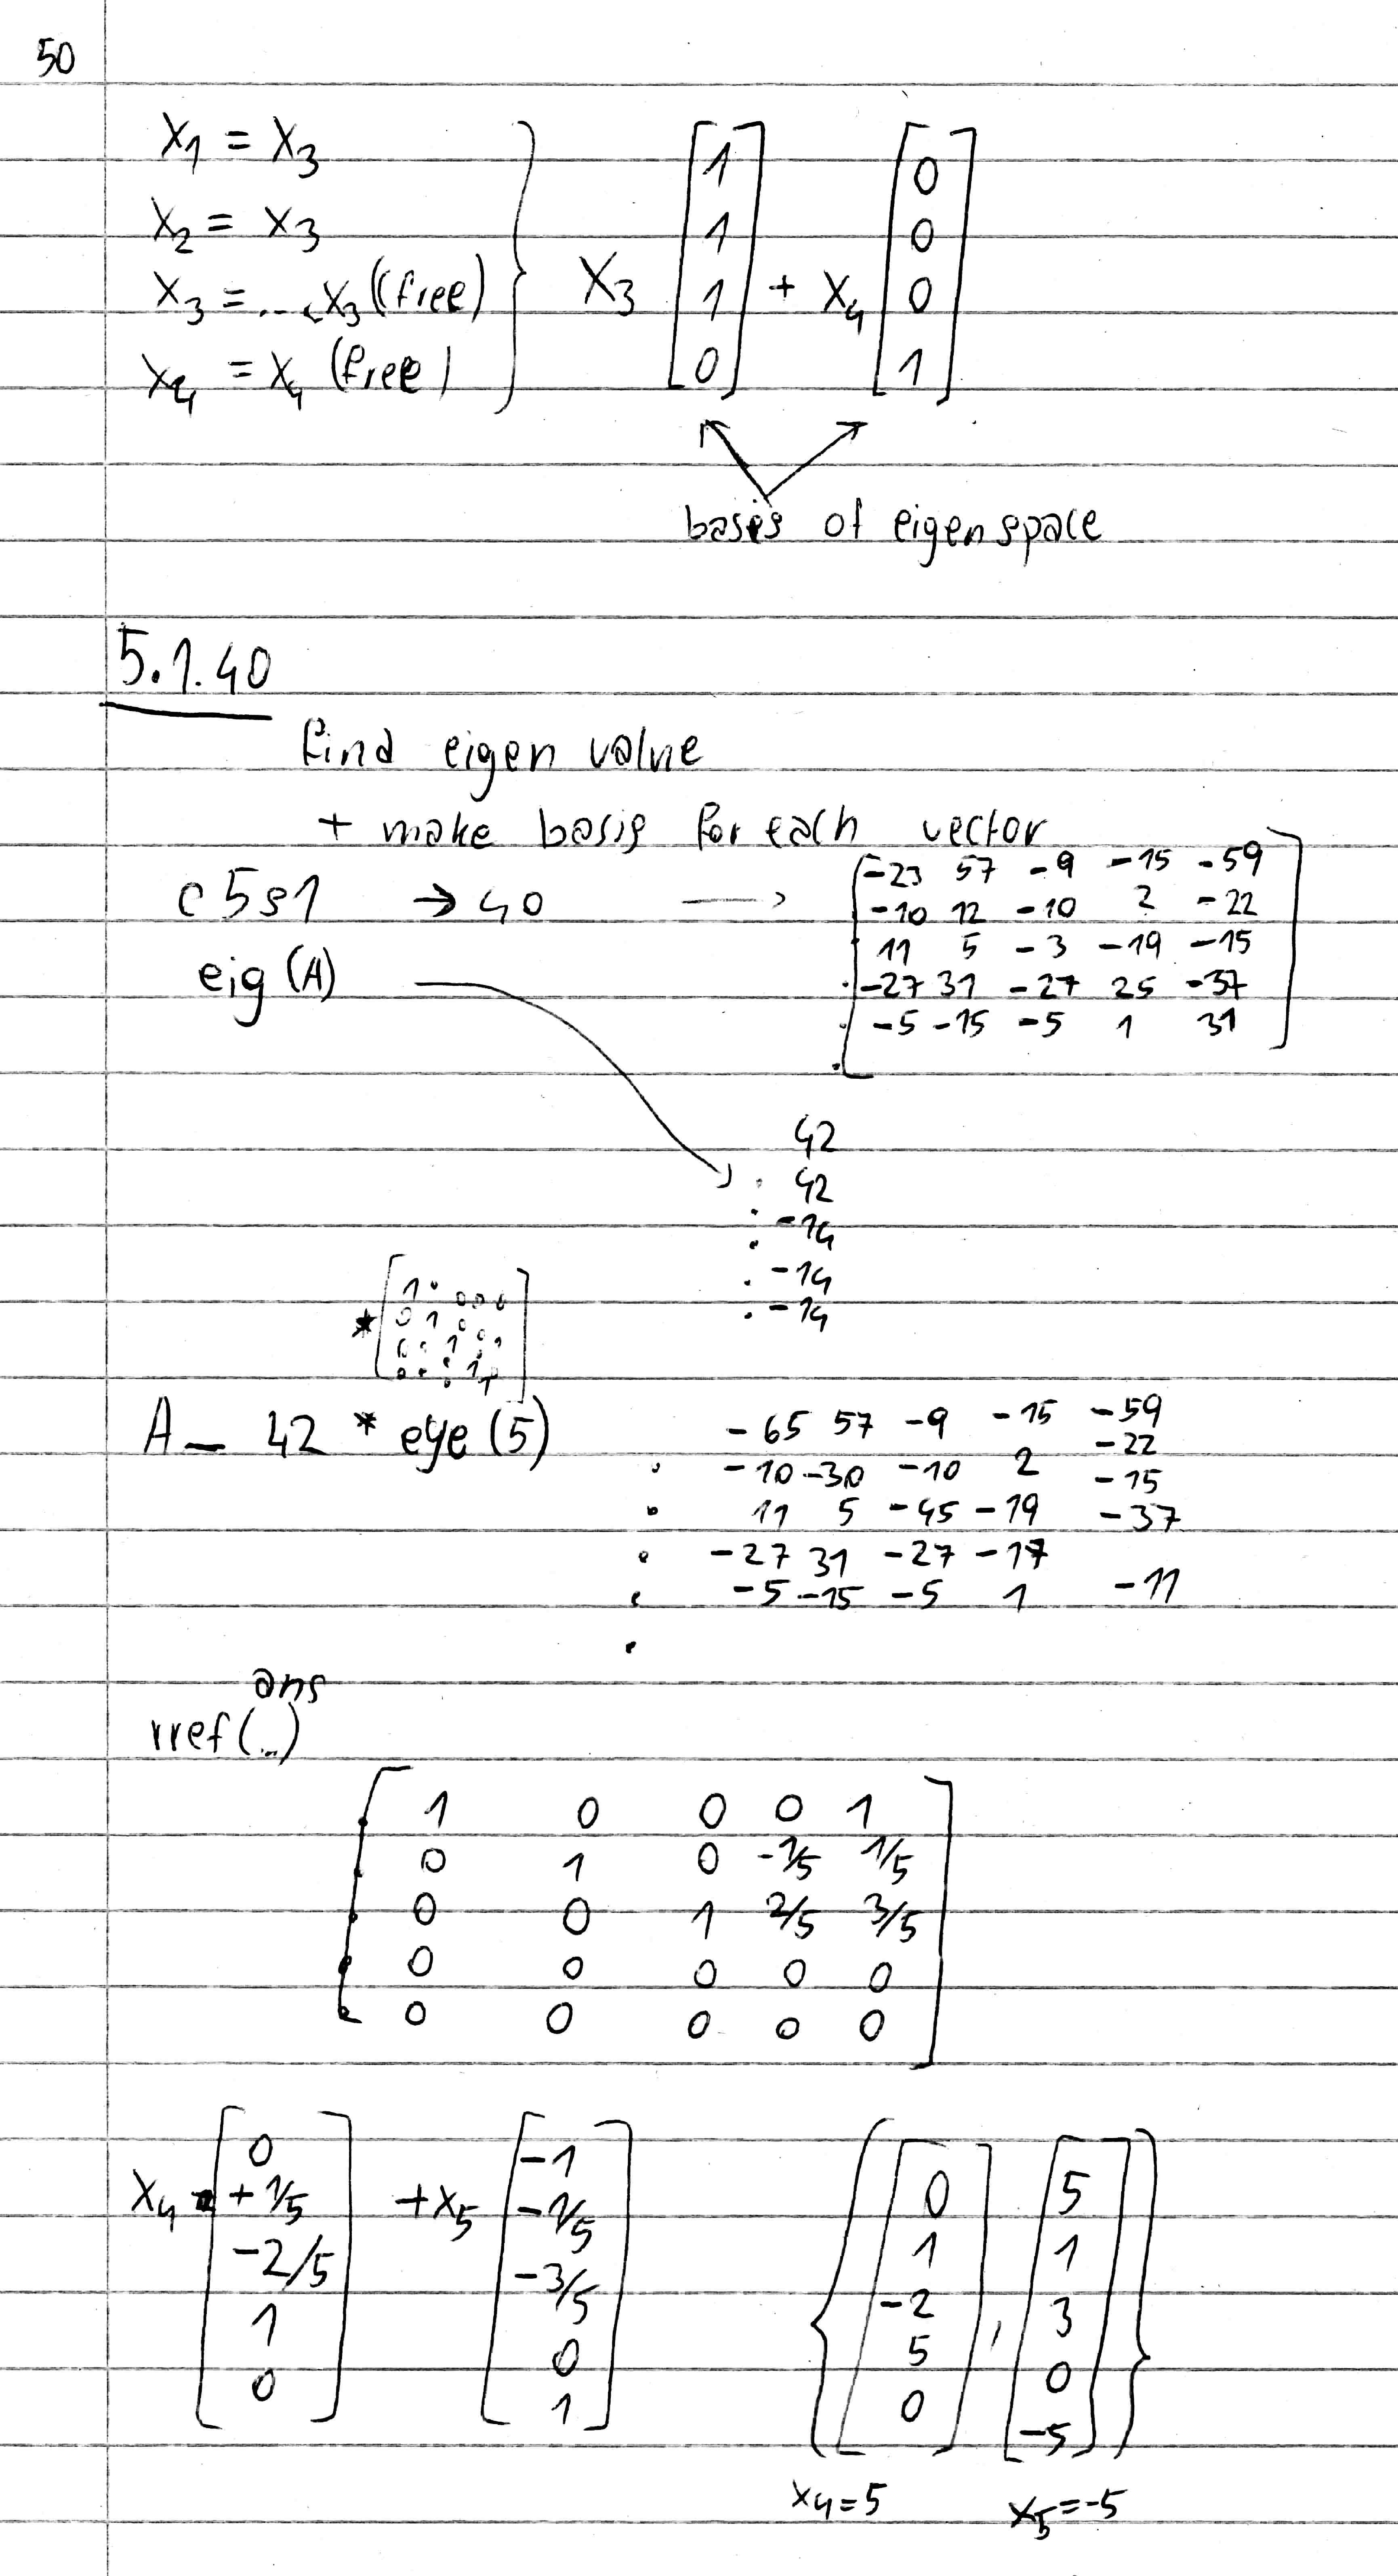 50
x1 = x3
x2 = x3
x3 = ... x3 (free)
x4 = x4 (free)
x3 [1 1 1 0] + x4 [0 0 0 1]
basis of eigenspace
5.1.40
find eigen value
+ make basis for each vector
c5s1 → 40 →
-23 57 -9 -15 -59
-10 12 -10 2 -22
11 5 -3 -19 -15
-27 31 -27 25 -37
-5 -15 -5 1 31
eig (A)
42
42
-14
-14
-14
A - 42 * eye (5)
-65 57 -9 -15 -59
-10 -30 -10 2 -22
11 5 -45 -19 -15
-27 31 -27 -17 -37
-5 -15 -5 1 -11
ans
rref (...)
1 0 0 0 1
0 1 0 -1/5 1/5
0 0 1 2/5 3/5
0 0 0 0 0
0 0 0 0 0
x4 [0 +1/5 -2/5 1 0] + x5 [-1 -1/5 -3/5 0 1]
{[0 1 -2 5 0], [5 1 3 0 -5]}
x4=5 x5=-5